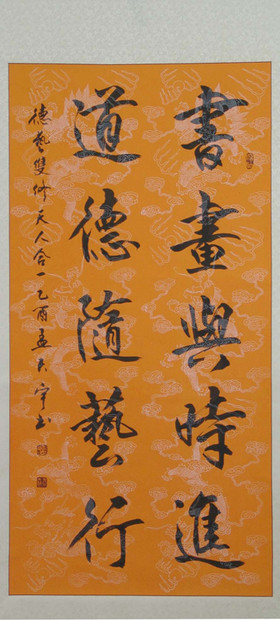 書畫與時進
道德隨藝行
德藝雙修天人合一乙酉孟天宇书